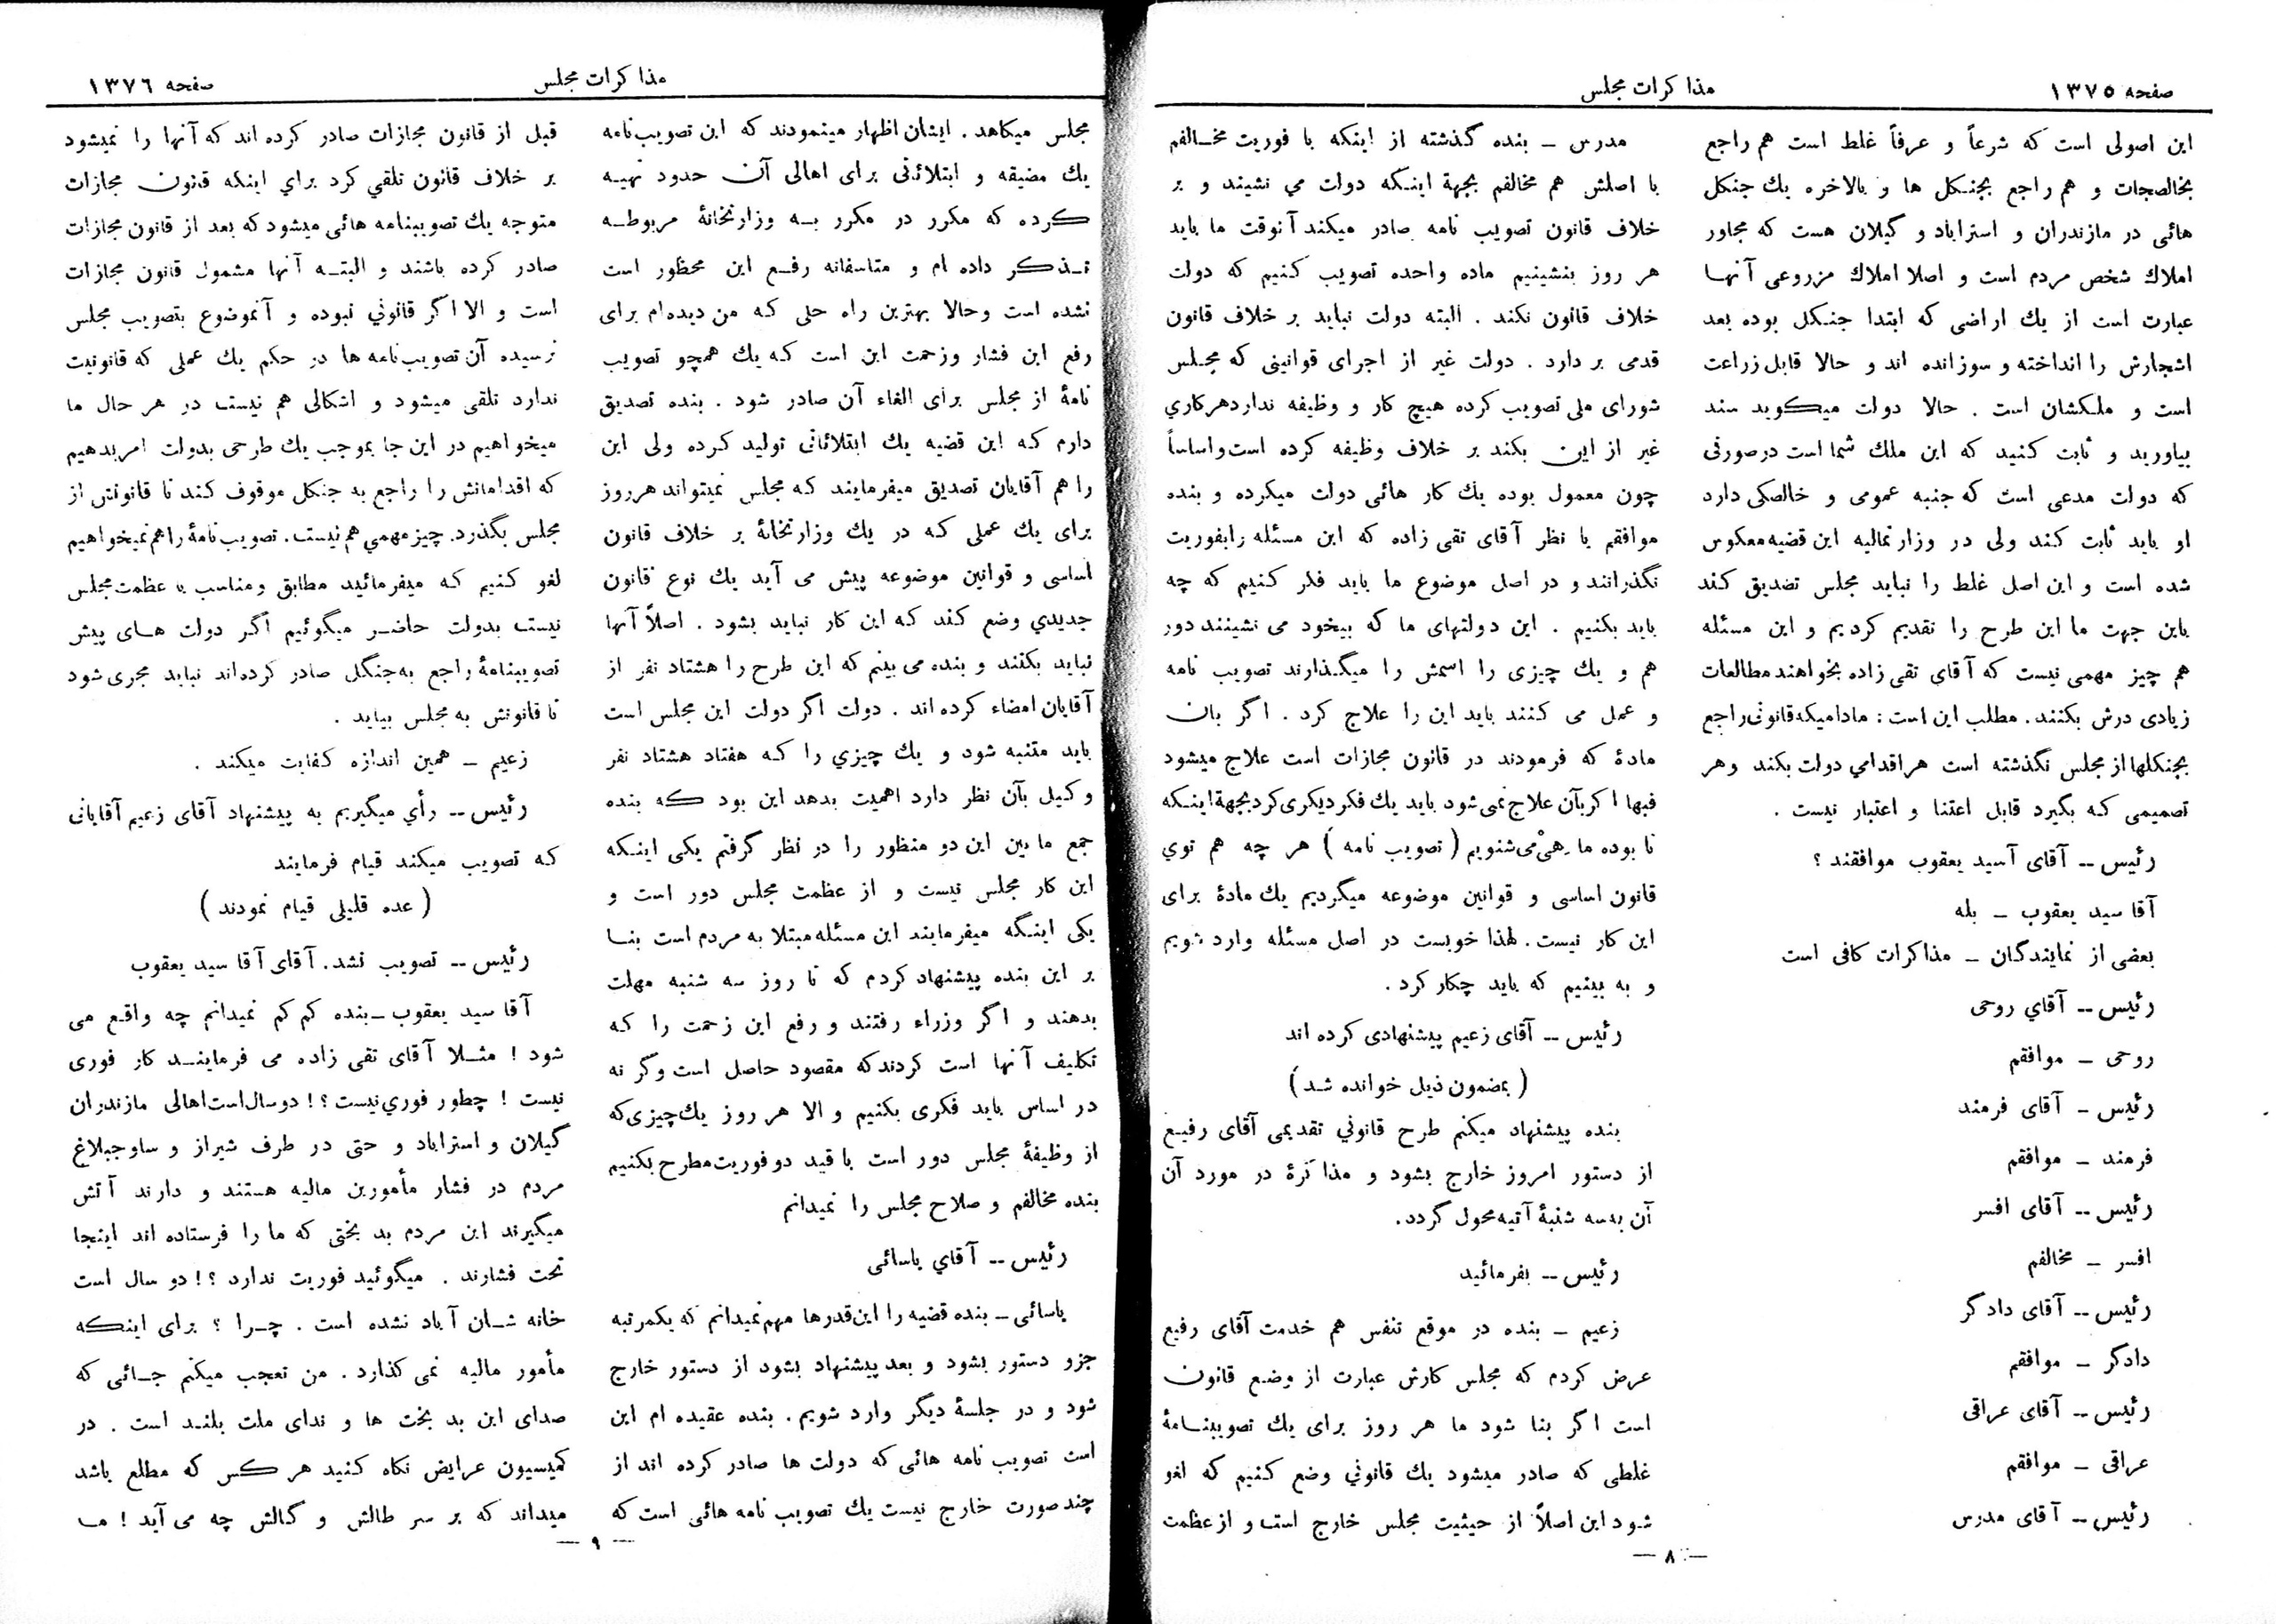 صفحه ۱۳۷۵
مذاکرات مجلس
این اصولی است که شرعاً و عرفاً غلط است هم راجع
بخالصجات و هم راجع بجنکل ها و بالاخره یك جنکل
هائی در مازندران و استراباد و گیلان هست که مجاور
املاك شخص مردم است و اصلا املاك مزروعی آنها
عبارت است از یك اراضی که ابتدا جنکل بوده بعد
اشجارش را انداخته و سوزانده اند و حالا قابل زراعت
است و ملکشان است . حالا دولت میکوید سند
بیاورید و ثابت کنید که این ملك شما است درصورتی
که دولت مدعی است که جنبه عمومی و خالصکی دارد
او باید ثابت کند ولی در وزارتمالیه این قضیه معکوس
شده است و این اصل غلط را نباید مجلس تصدیق کند
باین جهت ما این طرح را تقدیم کردیم و این مسئله
هم چیز مهمی نیست که آقای تقی زاده بخواهند مطالعات
زیادی درش بکنند . مطلب این است : مادامیکه قانونی راجع
بجنکلها از مجلس نگذشته است هر اقدامي دولت بکند وهر
تصمیمی که بگیرد قابل اعتنا و اعتبار نیست .
رئیس -- آقای آسید یعقوب موافقند ؟
آقا سید یعقوب - بله
بعضی از نمایندگان - مذاکرات کافی است
رئیس -- آقاي روحی
روحی - موافقم
رئیس - آقای فرمند
فرمند - موافقم
رئیس -- آقای افسر
افسر - مخالفم
رئیس -- آقای دادگر
دادگر - موافقم
رئیس -- آقای عراقی
عراقی - موافقم
رئیس -- آقای مدرس
مدرس - بنده گذشته از اینکه با فوریت مخالفم
با اصلش هم مخالفم بجهة اینکه دولت مي نشیند و بر
خلاف قانون تصویب نامه صادر میکند آنوقت ما باید
هر روز بنشینیم ماده واحده تصویب کنیم که دولت
خلاف قانون نکند . البته دولت نباید بر خلاف قانون
قدمی بر دارد . دولت غیر از اجرای قوانینی که مجلس
شورای ملی تصویب کرده هیچ کار و وظیفه نداردهرکاري
غیر از این بکند بر خلاف وظیفه کرده است و اساساً
چون معمول بوده یك کار هائی دولت میکرده و بنده
موافقم با نظر آقای تقی زاده که این مسئله رابفوریت
نگذرانند و در اصل موضوع ما باید فکر کنیم که چه
باید بکنیم . این دولتهای ما که بیخود می نشینند دور
هم و یك چیزی را اسمش را میگذارند تصویب نامه
و عمل می کنند باید این را علاج کرد . اگر بان
مادة که فرمودند در قانون مجازات است علاج میشود
فبها اکر بآن علاج نمی شود باید یك فکر دیکری کرد بجهة اینکه
تا بوده ما هی می شنویم ( تصویب نامه ) هر چه هم توي
قانون اساسی و قوانین موضوعه میگردیم یك مادة برای
این کار نیست . لهذا خوبست در اصل مسئله وارد شویم
و به بینیم که باید چکار کرد .
رئیس -- آقای زعیم پیشنهادی کرده اند
( بمضمون ذیل خوانده شد )
بنده پیشنهاد میکنم طرح قانوني تقدیمی آقای رفیع
از دستور امروز خارج بشود و مذاکرۀ در مورد آن
آن بسه شنبۀ آتیه محول گردد .
رئیس -- بفرمائید
زعیم - بنده در موقع تنفس هم خدمت آقای رفیع
عرض کردم که مجلس کارش عبارت از وضع قانون
است اگر بنا شود ما هر روز برای یك تصویبنامۀ
غلطی که صادر میشود یك قانوني وضع کنیم که لغو
شود این اصلاً از حیثیت مجلس خارج است و از عظمت
— ۸ —
صفحه ۱۳۷۶
مذاکرات مجلس
مجلس میکاهد . ایشان اظهار مینمودند که این تصویب‌نامه
یك مضیقه و ابتلائاتی برای اهالی آن حدود تهیه
کرده که مکرر در مکرر به وزارتخانۀ مربوطه
تذکر داده ام و متاسفانه رفع این محظور است
نشده است وحالا بهترین راه حلی که من دیده‌ام برای
رفع این فشار وزحمت این است که یك همچو تصویب
نامۀ از مجلس برای الغاء آن صادر شود . بنده تصدیق
دارم که این قضیه یك ابتلائاتی تولید کرده ولی این
را هم آقایان تصدیق میفرمایند که مجلس نمیتواند هرروز
برای یك عملی که در یك وزارتخانۀ بر خلاف قانون
اساسی و قوانین موضوعه پیش می آید یك نوع قانون
جدیدي وضع کند که این کار نباید بشود . اصلاً آنها
نباید بکنند و بنده می بینم که این طرح را هشتاد نفر از
آقایان امضاء کرده اند . دولت اگر دولت این مجلس است
باید متنبه شود و یك چیزي را که هفتاد هشتاد نفر
وکیل بآن نظر دارد اهمیت بدهد این بود که بنده
جمع ما بین این دو منظور را در نظر گرفتم یکی اینکه
این کار مجلس نیست و از عظمت مجلس دور است و
یکی اینگه میفرمایند این مسئله مبتلا به مردم است بنا
بر این بنده پیشنهاد کردم که تا روز سه شنبه مهلت
بدهند و اگر وزراء رفتند و رفع این زحمت را که
تکلیف آنها است کردندکه مقصود حاصل است وگر نه
در اساس باید فکری بکنیم و الا هر روز یك‌چیزی‌که
از وظیفۀ مجلس دور است با قید دو فوریت مطرح بکنیم
بنده مخالفم و صلاح مجلس را نمیدانم
رئیس -- آقاي یاسائی
یاسائی - بنده قضیه را این‌قدرها مهم نمیدانم که یکمرتبه
جزو دستور بشود و بعد پیشنهاد بشود از دستور خارج
شود و در جلسۀ دیگر وارد شویم . بنده عقیده ام این
است تصویب نامه هائی که دولت ها صادر کرده اند از
چند صورت خارج نیست یك تصویب نامه هائی است که
قبل از قانون مجازات صادر کرده اند که آنها را نمیشود
بر خلاف قانون تلقي کرد براي اینکه قانون مجازات
متوجه یك تصویبنامه هائی میشود که بعد از قانون مجازات
صادر کرده باشند و البته آنها مشمول قانون مجازات
است و الا اگر قانوني نبوده و آنموضوع بتصویب مجلس
نرسیده آن تصویب‌نامه ها در حکم یك عملی که قانونیت
ندارد تلقی میشود و اشکالی هم نیست در هر حال ما
میخواهیم در این جا بموجب یك طرحی بدولت امر بدهیم
که اقداماتش را راجع به جنکل موقوف کند تا قانونش از
مجلس بگذرد. چیز مهمي هم نیست . تصویب نامۀ را هم نمیخواهیم
لغو کنیم که میفرمائید مطابق و مناسب با عظمت مجلس
نیست بدولت حاضر میگوئیم اگر دولت های پیش
تصویبنامۀ راجع به جنگل صادر کرده‌اند نباید مجری شود
تا قانونش به مجلس بیاید .
زعیم - همین اندازه کفایت میکند .
رئیس -- رأي میگیریم به پیشنهاد آقای زعیم آقایانی
که تصویب میکند قیام فرمایند
( عده قلیلی قیام نمودند )
رئیس -- تصویب نشد . آقای آقا سید یعقوب
آقا سید یعقوب - بنده کم کم نمیدانم چه واقع می
شود ! مثلا آقای تقی زاده می فرمایند کار فوری
نیست ! چطور فوري نیست ؟ ! دوسال است اهالی مازندران
گیلان و استراباد و حتی در طرف شیراز و ساوجبلاغ
مردم در فشار مأمورین مالیه هستند و دارند آتش
میگیرند این مردم بد بختی که ما را فرستاده اند اینجا
تحت فشارند . میگوئید فوریت ندارد ؟ ! دو سال است
خانه شان آباد نشده است . چرا ؟ برای اینکه
مأمور مالیه نمی گذارد . من تعجب میکنم جائی که
صدای این بد بخت ها و ندای ملت بلند است . در
کمیسیون عرایض نگاه کنید هر کس که مطلع باشد
میداند که بر سر طالش و گالش چه می آید ! ما
— ۹ —